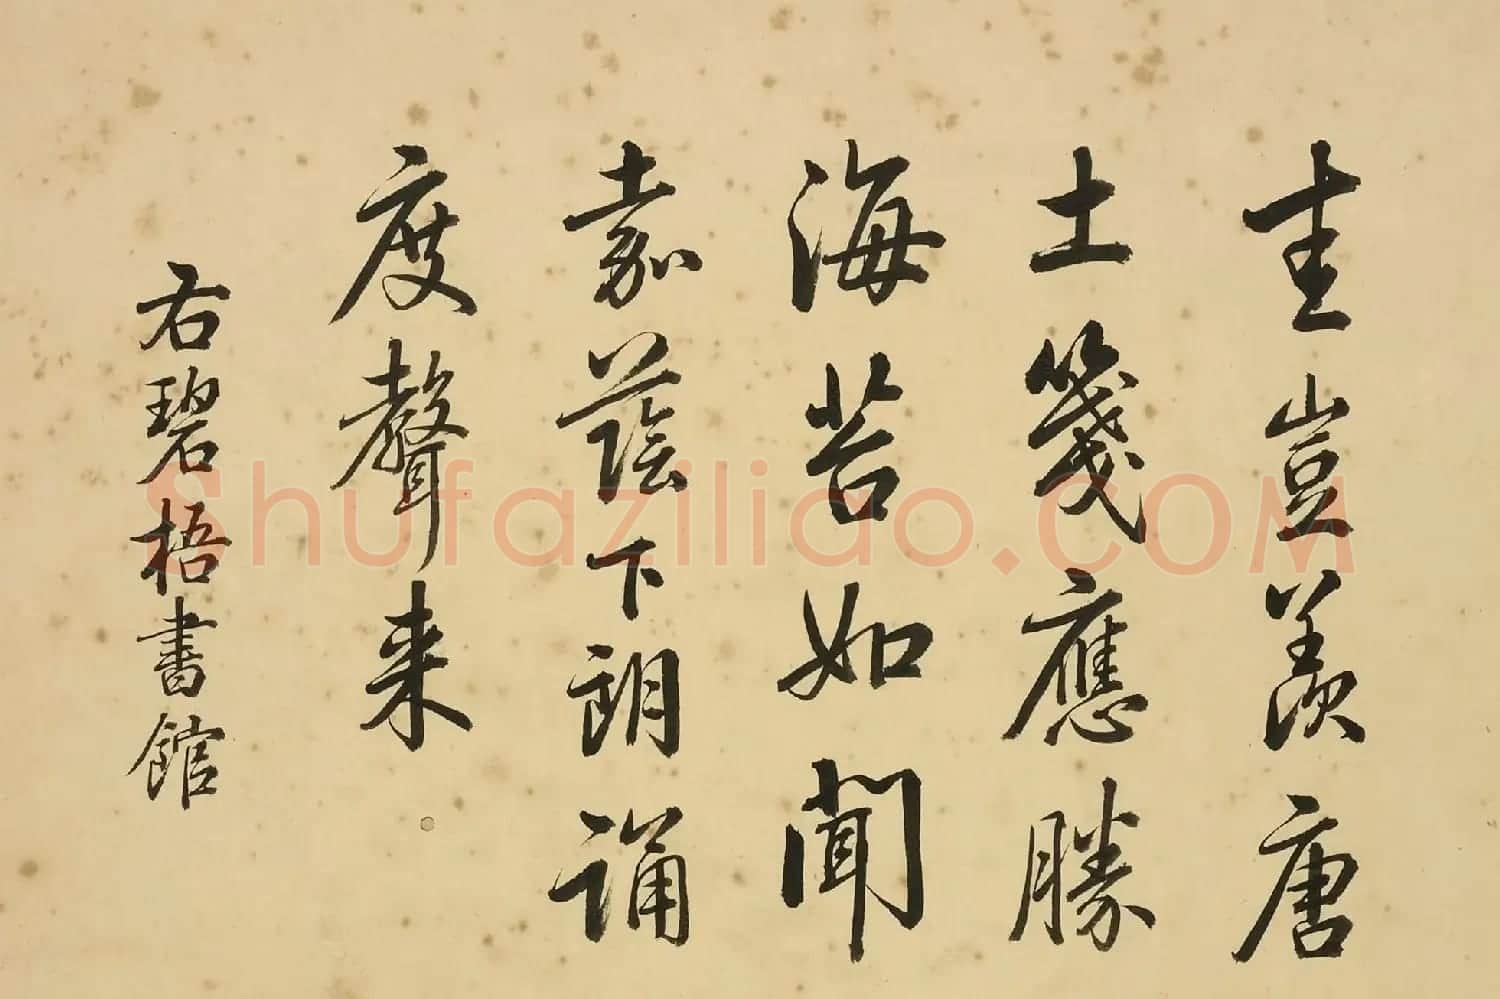 圭豈羨唐
土箋應勝
海苔如聞
嘉蔭下朗誦
度聲来
右碧梧書館
Shufaziliao.COM